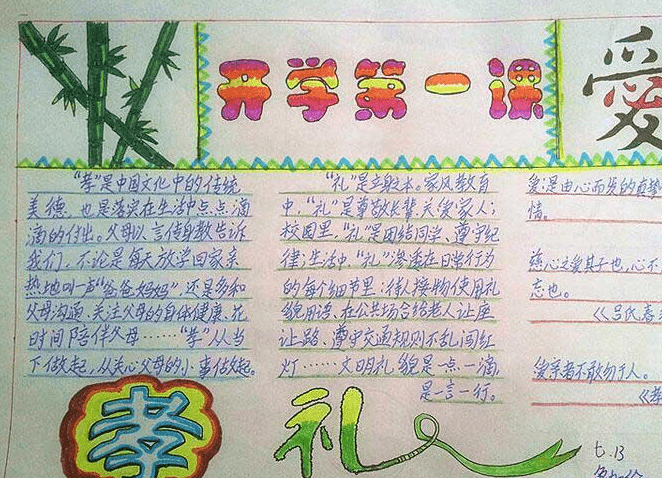 开学第一课
爱
“孝”是中国文化中的传统
美德，也是落实在生活中点点滴
滴的付出。父母以言传身教告诉
我们，不论是每天放学回家亲
热地叫一声“爸爸妈妈”，还是多和
父母沟通，关注父母的身体健康、花
时间陪伴父母……“孝”从当
下做起，从关心父母的小事做起。
孝
“礼”是立身之本。家风教育
中，“礼”是尊敬长辈、关爱家人；
校园里，“礼”是团结同学、遵守纪
律；生活中，“礼”渗透在日常行为
的每个细节里：待人接物使用礼
貌用语、在公共场合给老人让座
让路、遵守交通规则不乱闯红
灯……文明礼貌是一点一滴，
是一言一行。
礼
爱：是由心而发的真挚
情。
慈心之爱其子也，心不
忘也。
《吕氏春
爱亲者不敢勿于人。
《孝
七.13